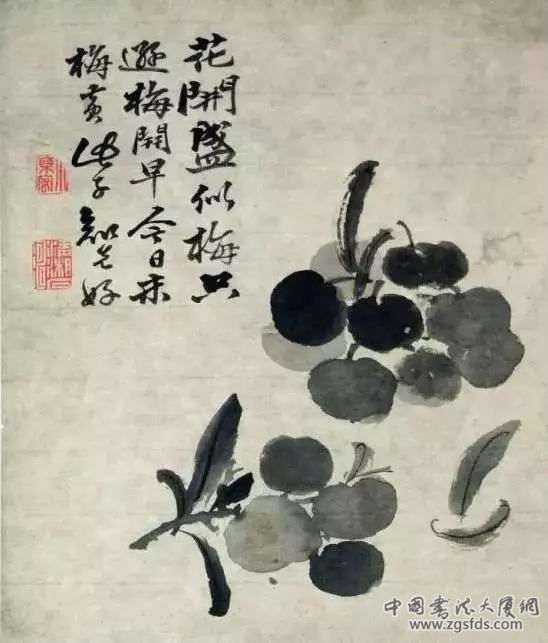 花開盛似梅只
遜梅開早今日
梅黄子好
中國書法大厦網
www.zgsfds.com